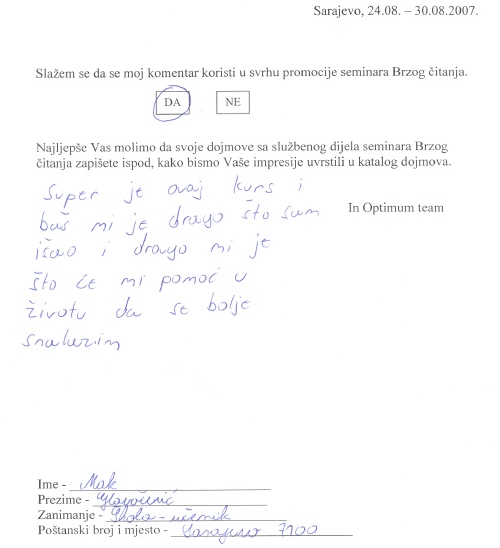 Sarajevo, 24.08. – 30.08.2007.
Slažem se da se moj komentar koristi u svrhu promocije seminara Brzog čitanja.
DA NE
Najljepše Vas molimo da svoje dojmove sa službenog dijela seminara Brzog
čitanja zapišete ispod, kako bismo Vaše impresije uvrstili u katalog dojmova.
In Optimum team
super je ovaj kurs i
baš mi je drago što sam
išao i drago mi je
što će mi pomoć u
životu da se bolje
snalazim
Ime - Mak
Prezime -
Zanimanje - Škola - učenik
Poštanski broj i mjesto - Sarajevo 7100